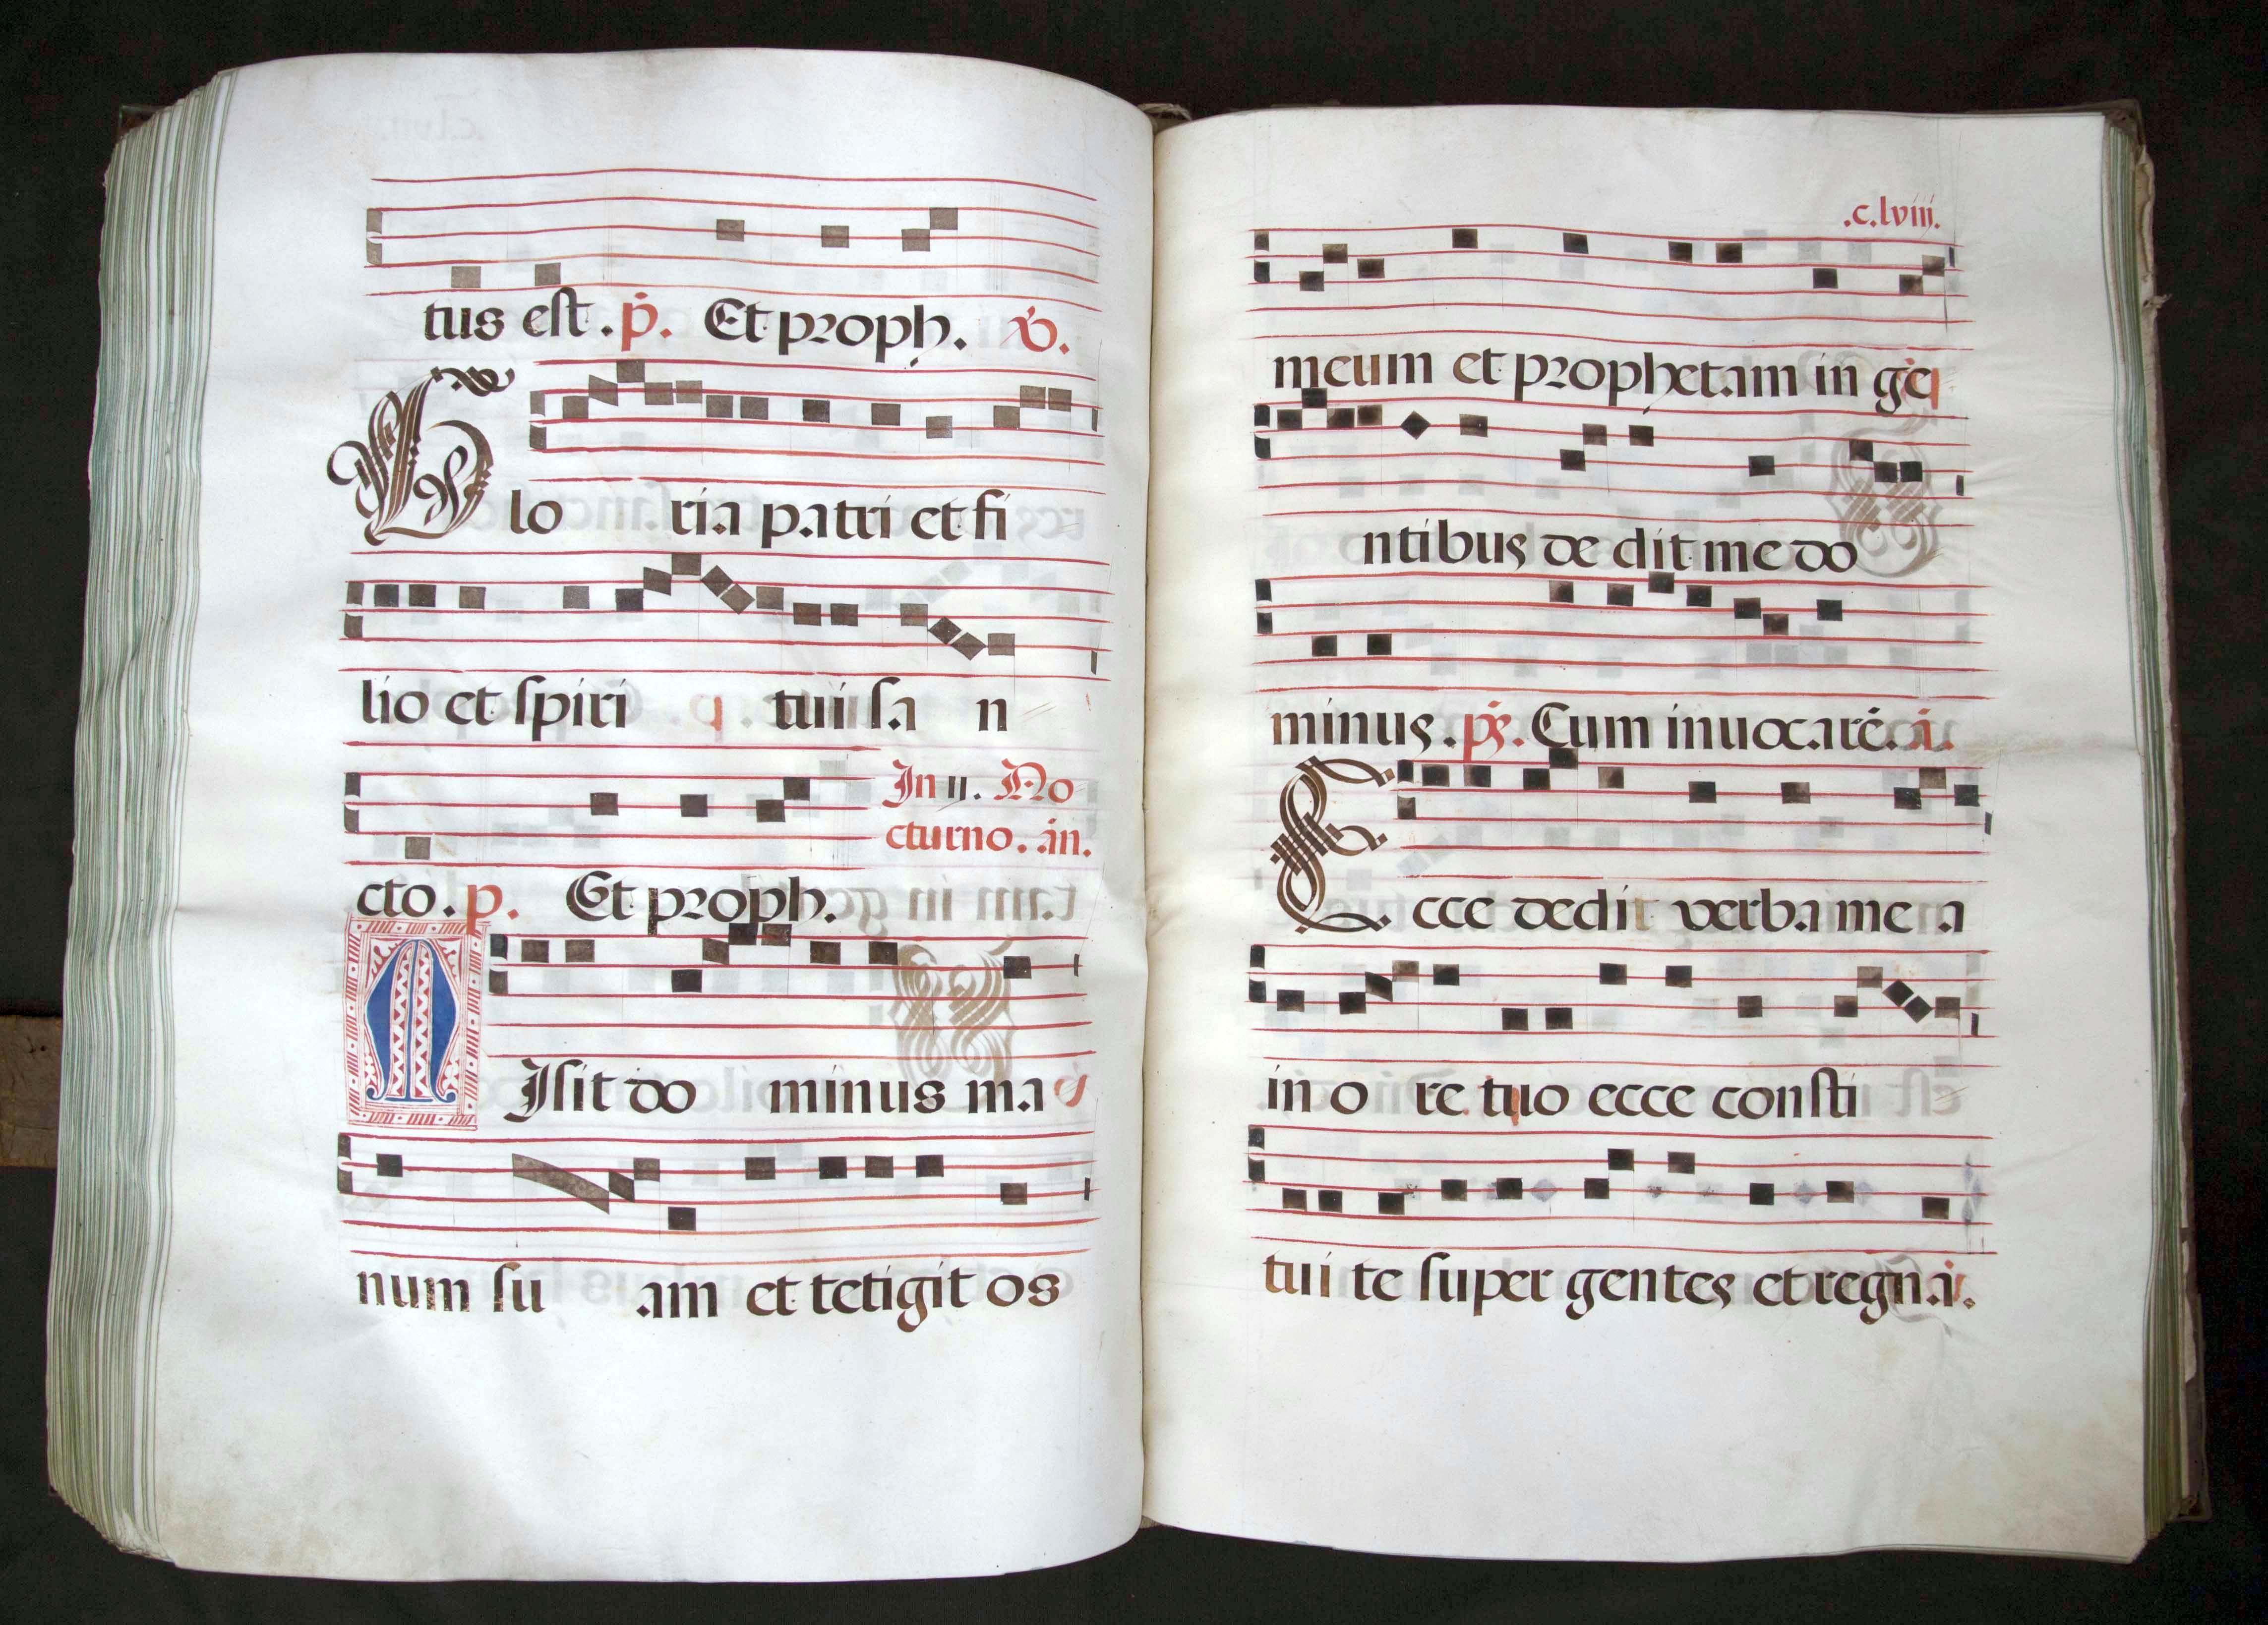 tus est . p̄. Et proph. v̄.
Glo ria patri et fi
lio et spiri tui sa n
In ıı. No
cturno. an̄.
cto. p. Et proph.
MIsit do minus ma
num su am et tetigit os
.c.lviij.
meum et prophetam in ge
ntibus de dit me do
minus. p̄s. Cum inuocarē. ā.
Ecce dedit verba me a
in o re tuo ecce consti
tui te super gentes et regna.